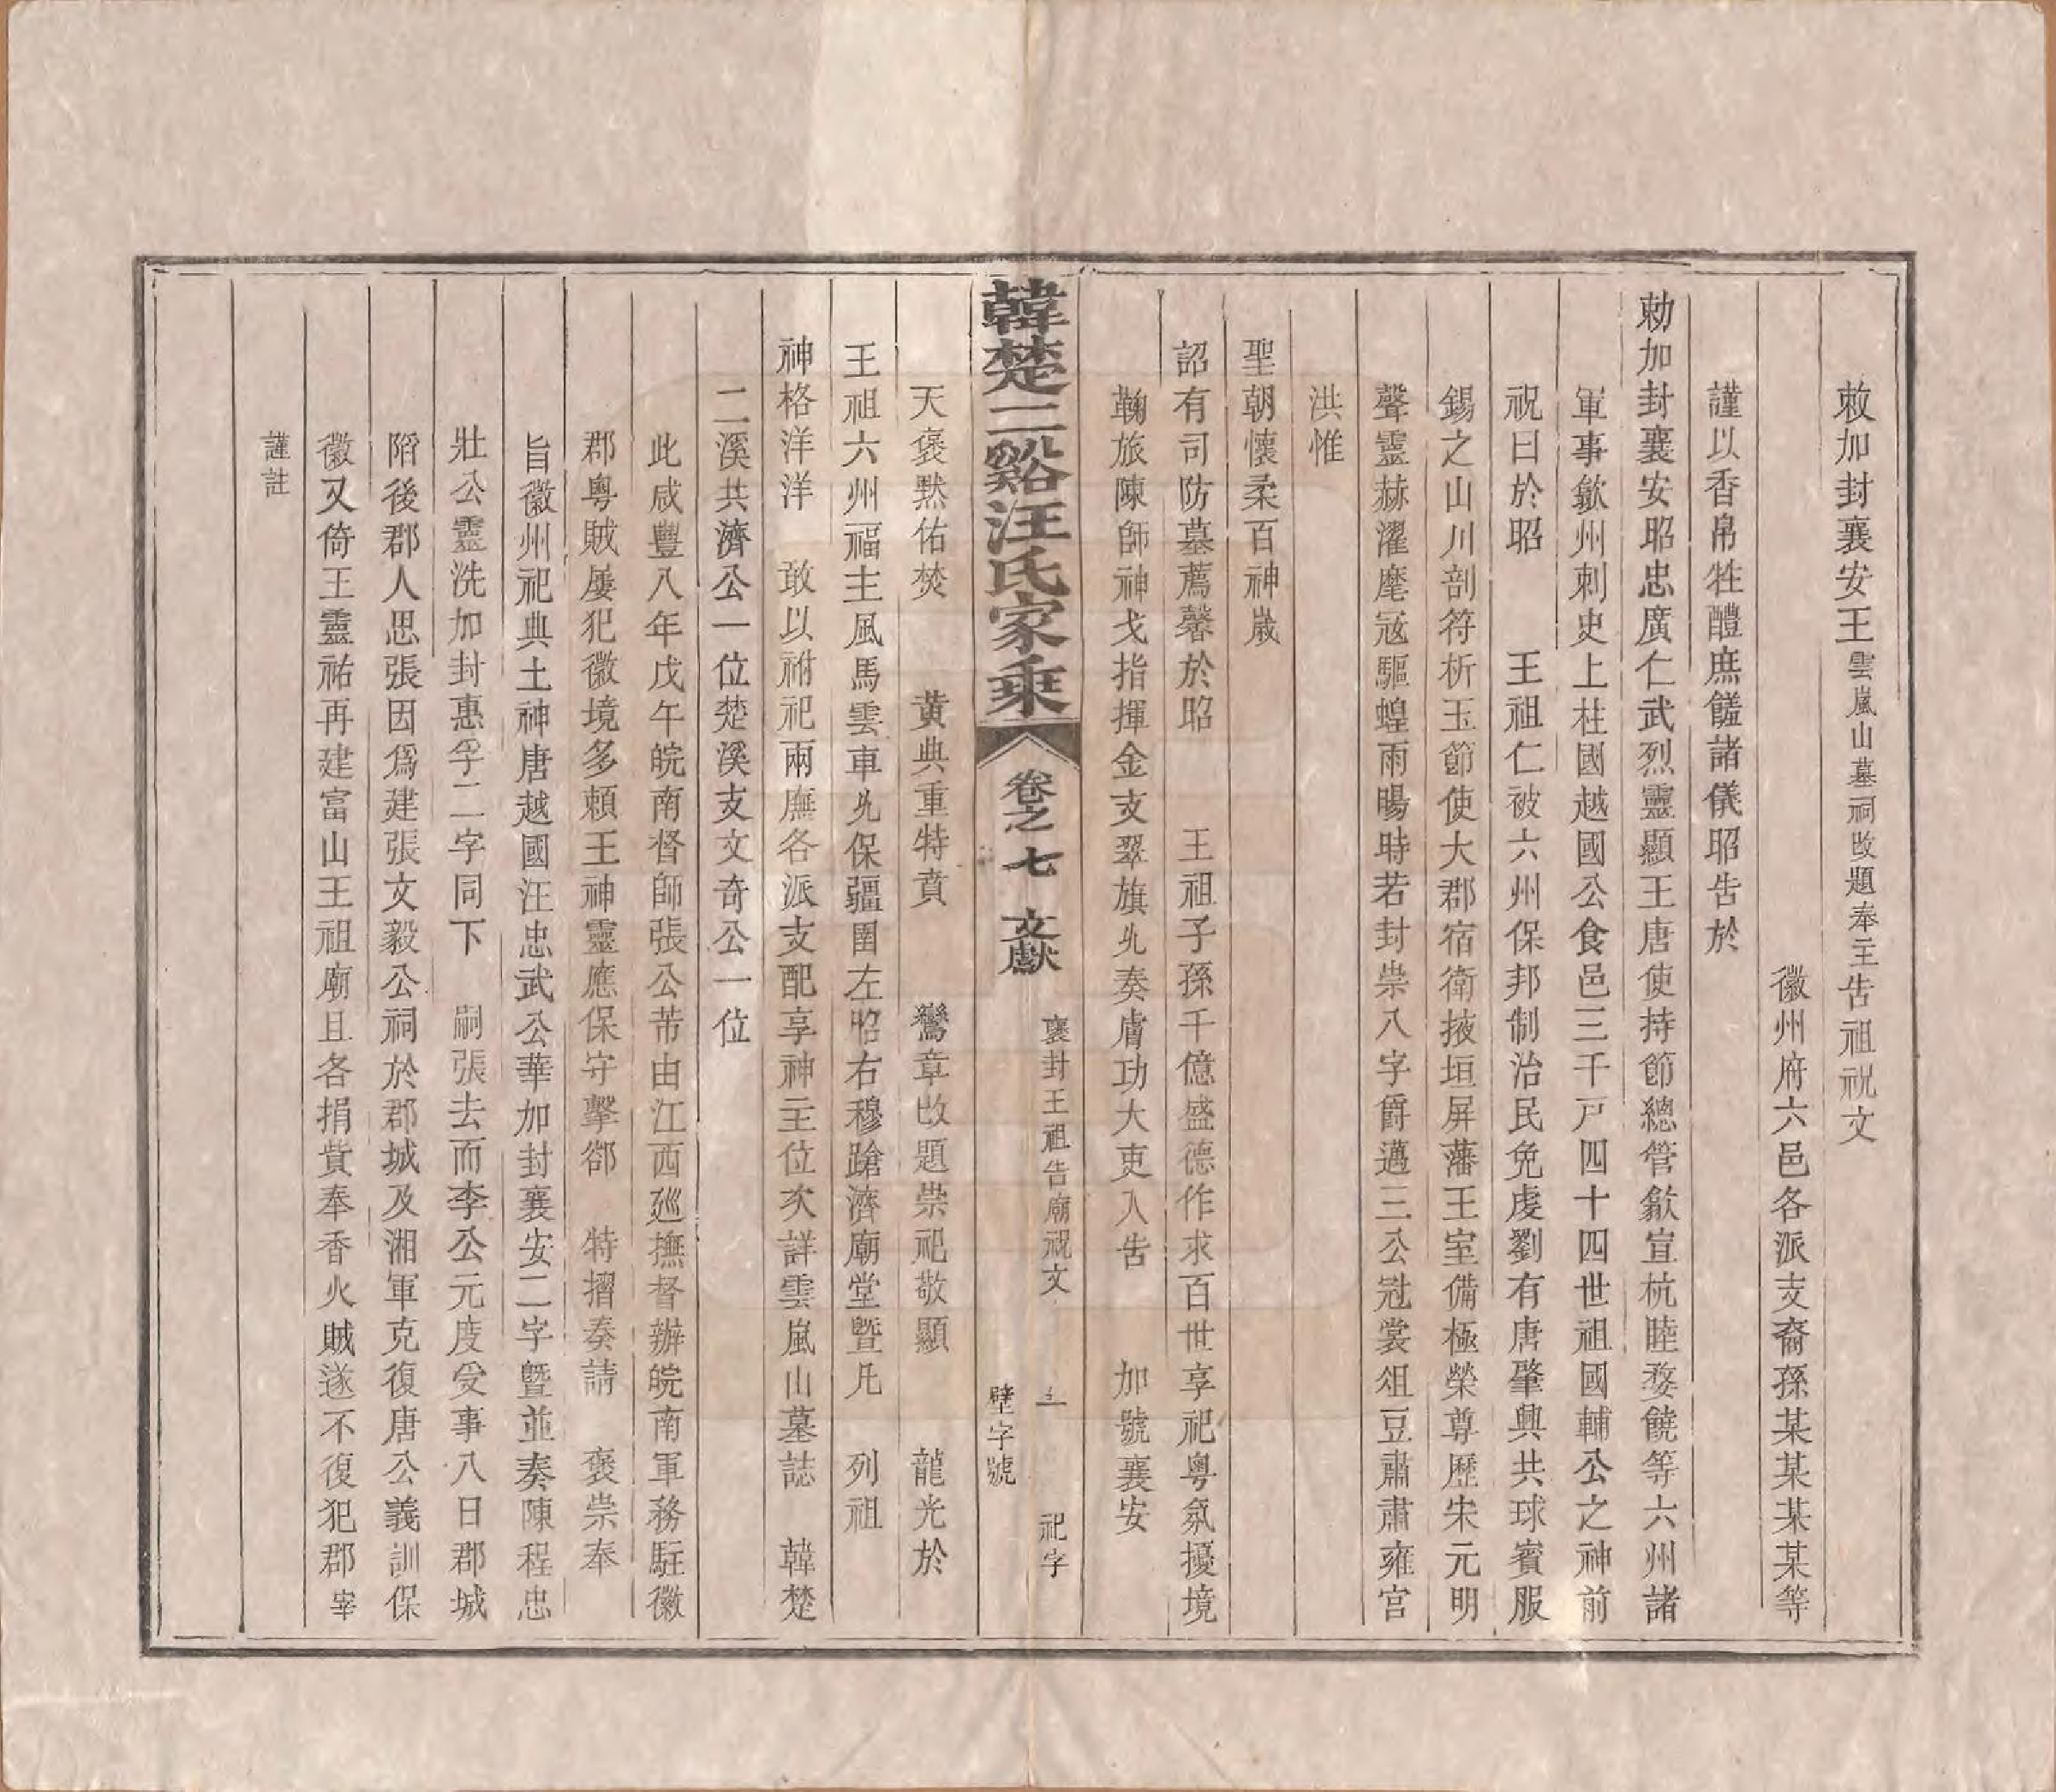 敕加封襄安王雲嵐山墓祠改題奉主告祖祝文
徽州府六邑各派支裔孫某某某某等
謹以香帛牲醴庶饈諸儀昭告於
勅加封襄安昭忠廣仁武烈靈顯王唐使持節總管歙宣杭睦婺饒等六州諸
軍事歙州刺史上柱國越國公食邑三千戸四十四世祖國輔公之神前
祝曰於昭　王祖仁被六州保邦制治民免虔劉有唐肇興共球賓服
錫之山川剖符析玉節使大郡宿衛掖垣屏藩王室備極榮尊歷宋元明
聲靈赫濯麾寇驅蝗雨暘時若封崇八字爵邁三公冠裳俎豆肅肅雍宮
洪惟
聖朝懷柔百神歲
詔有司防墓薦馨於昭　王祖子孫千億盛德作求百世享祀粵氛擾境
鞠旅陳師神戈指揮金支翠旗光奏膚功大吏入告　加號襄安
韓楚二谿汪氏家乘
卷之七　文獻
襄封王祖告廟祝文　五　祀字
壁字號
天褒默佑焚　黄典重特賁　鸞章改題崇祀敬顯　龍光於
王祖六州福主風馬雲車光保疆圉左昭右穆蹌濟廟堂曁凡　列祖
神格洋洋　敢以祔祀兩廡各派支配享神主位次詳雲嵐山墓誌　韓楚
二溪共濟公一位楚溪支文奇公一位
此咸豐八年戊午皖南督師張公芾由江西廵撫督辦皖南軍務駐徽
郡粤賊屢犯徽境多頼王神靈應保守擊郤　特摺奏請　褒崇奉
旨徽州祀典土神唐越國汪忠武公華加封襄安二字曁並奏陳程忠
壯公靈洗加封惠孚二字同下　嗣張去而李公元度受事八日郡城
陷後郡人思張因爲建張文毅公祠於郡城及湘軍克復唐公義訓保
徽又倚王靈祐再建富山王祖廟且各捐貲奉香火賊遂不復犯郡宰
謹註